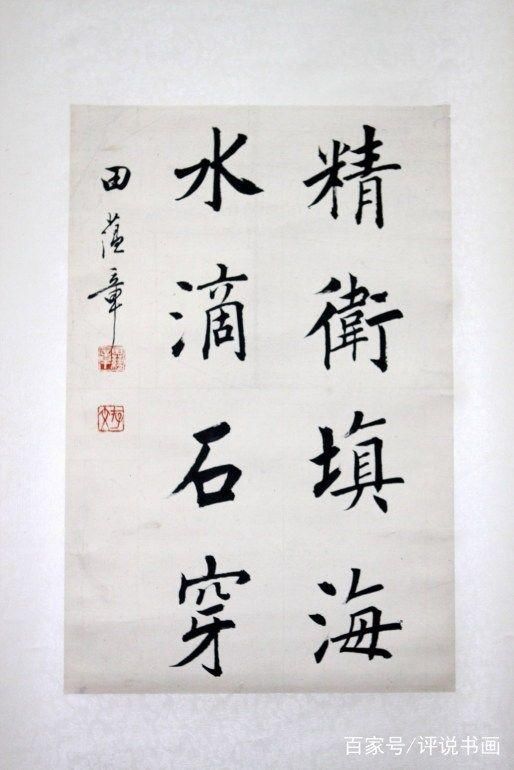 精衛填海
水滴石穿
田蕴章
百家号/评说书画